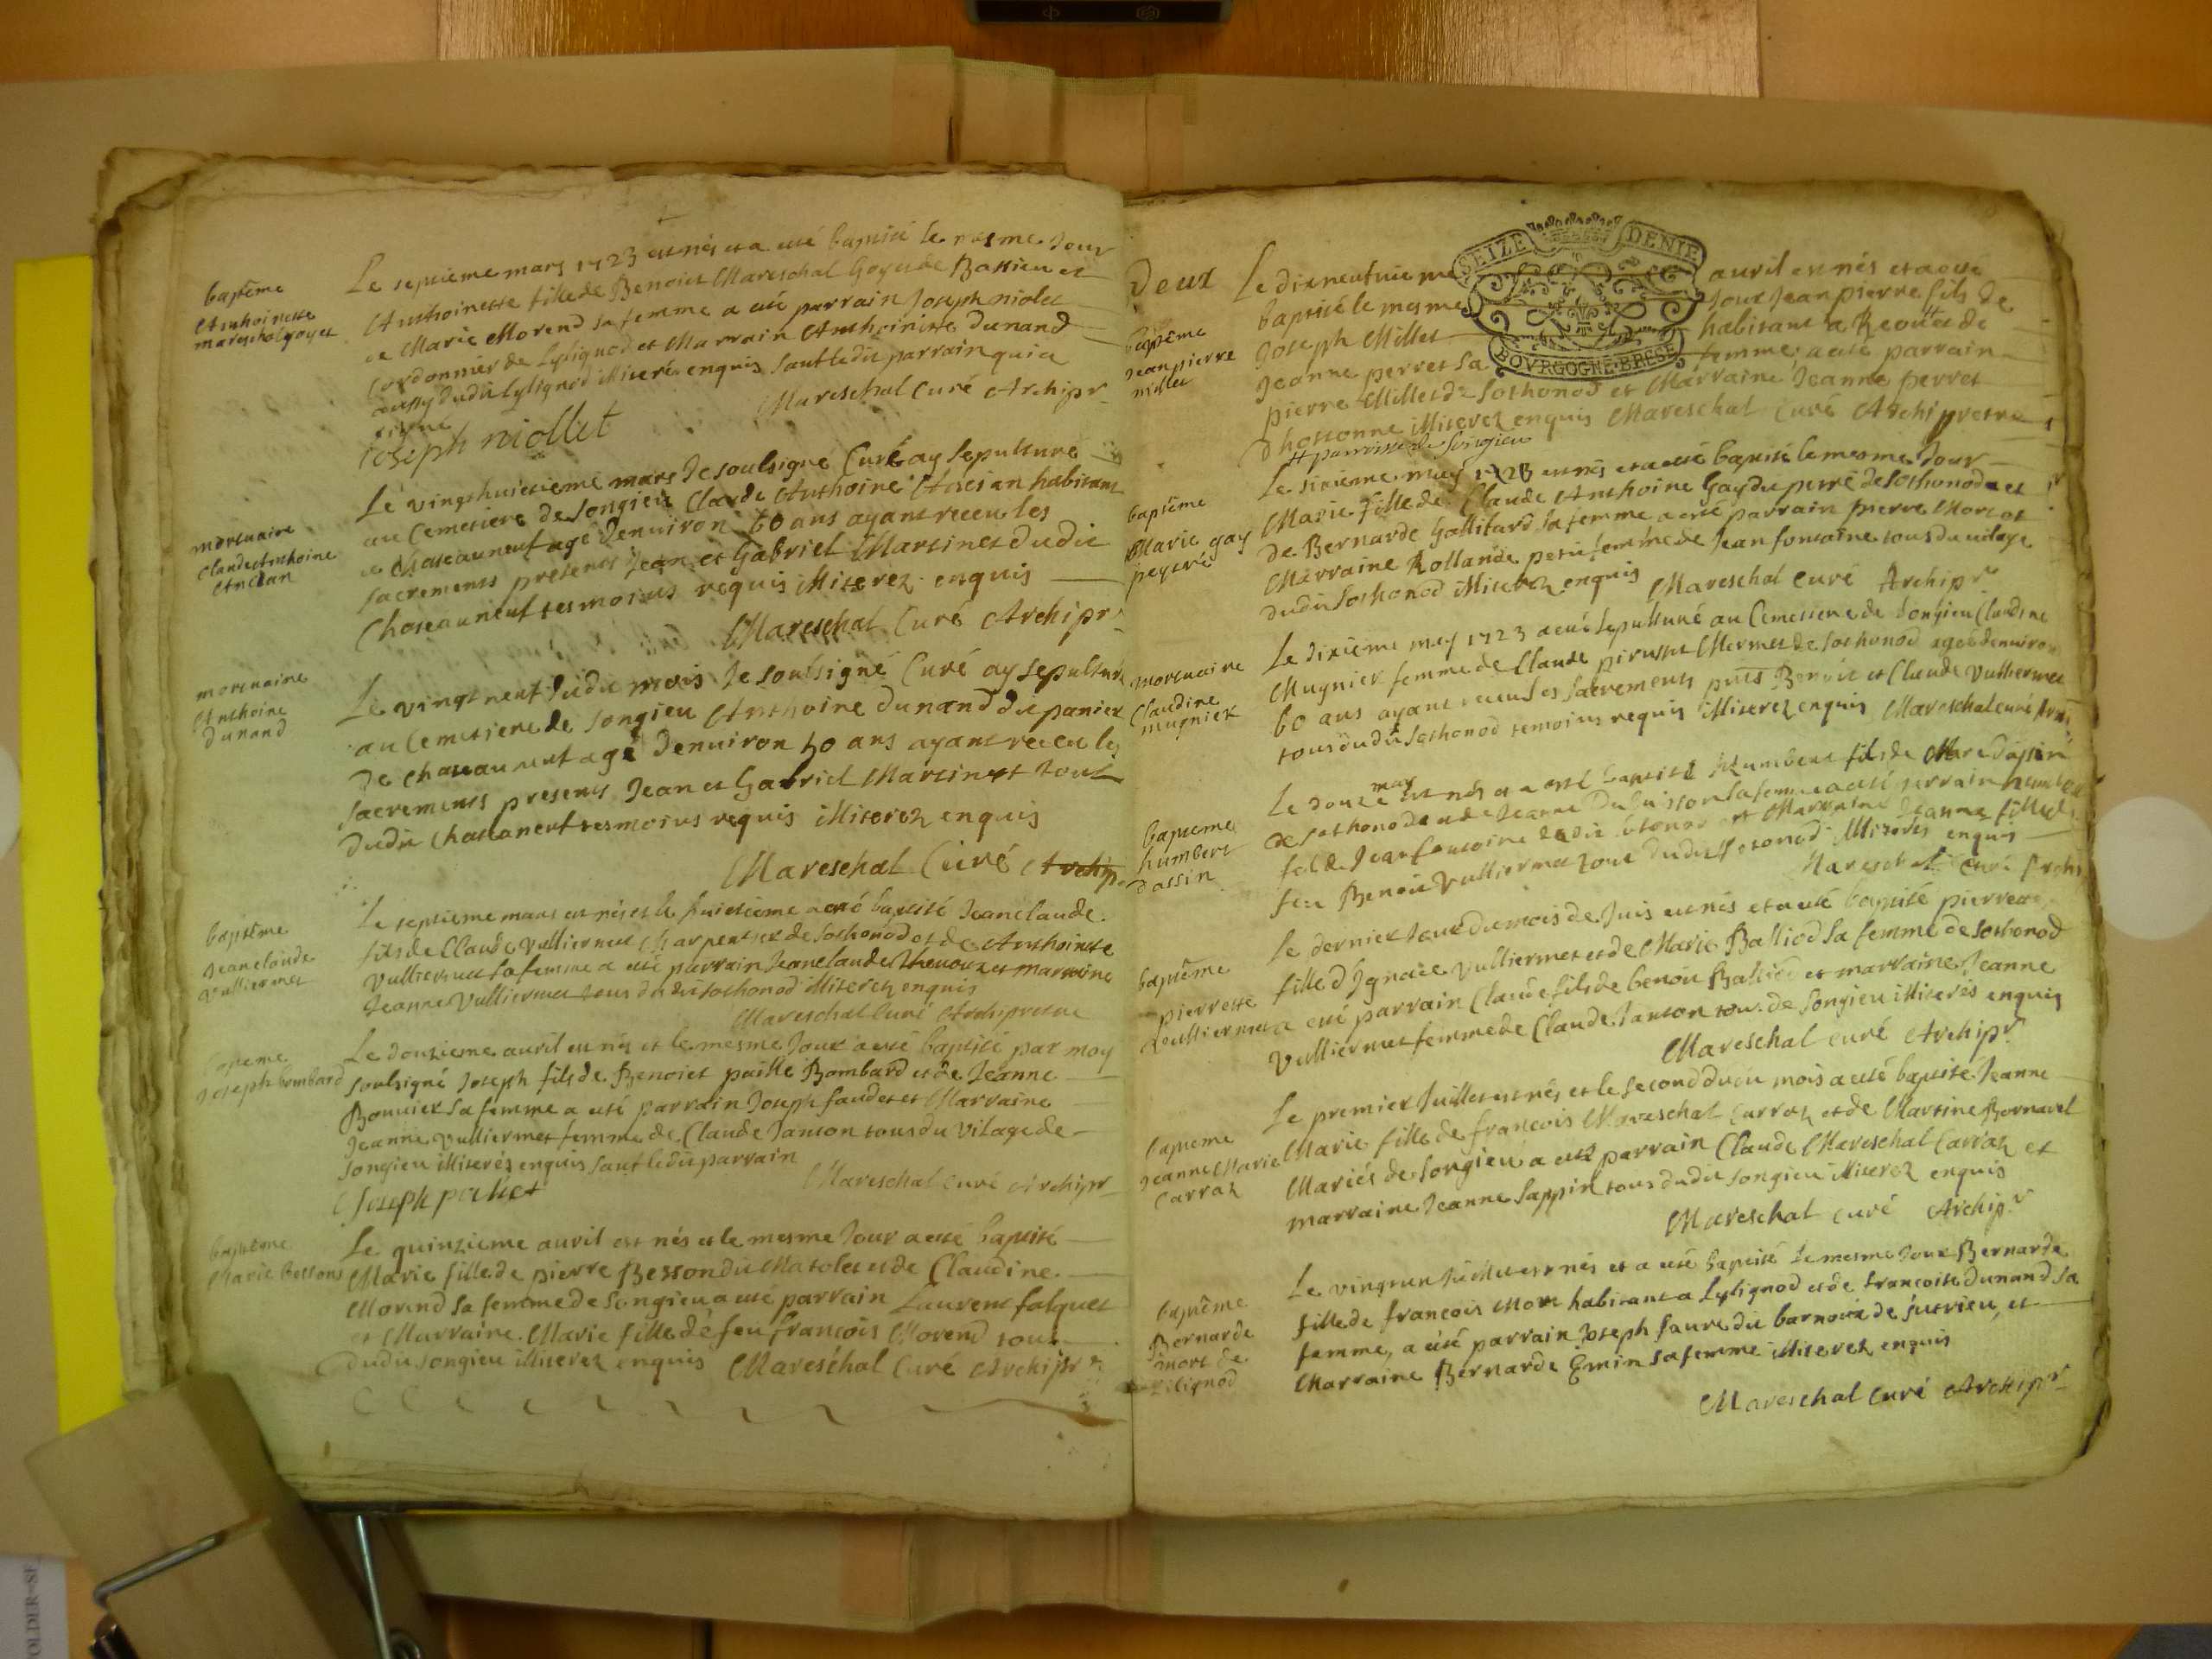 baptême
Anthoinette
mareschal goyet
Le septieme mars 1723 est née et a esté baptisé le mesme Jour
Anthoinette fille de Benoist Mareschal Goyet de Bassieu et
de Marie Morend sa femme a esté parrain Joseph niolet
Cordonnier de Lylignod et Marrain Anthoinette Dunand
aussy dudit Lylignod illiterés enquis sauf ledit parrain qui a
signé
Mareschal Curé Archipr
Joseph niollet
mortuaire
Claude Anthoine
Le vingt huictieme mars Je soulsigné Curé ay sepulturé
au Cemetiere de Songieu Claude Anthoine habitant
a Chateauneuf agé denviron 60 ans ayant receu les
sacrements presents Jean et Gabriel Martinet dudit
Chateauneuf tesmoins requis illiterez enquis
Mareschal Curé Archipr
mortuaire
Anthoine
Dunand
Le vingt neuf dudit mois Je soulsigné Curé ay sepulturé
au Cemetiere de Songieu Anthoine Dunand du panier
de Chateauneuf agé denviron 50 ans ayant receu les
sacrements presents Jean et Gabriel Martinet tout
dudit Chateauneuf tesmoins requis illiterez enquis
Mareschal Curé Archip.
baptême
Jeanclaude
Vulliermet
Le septieme mars est nés et le huictieme a esté baptisé Jeanclaude
fils de Claude Vulliermet Charpentier de Sothonod et de Anthoinette
Vulliermet sa femme a esté parrain Jeanclaude Thevoux et marraine
Jeanne Vulliermet tous dudit Sothonod illiterez enquis
Mareschal Curé Archipretre
bapteme
Joseph bombard
Le douzieme avril est nés et le mesme Jour a esté baptisé par moy
soulsigné Joseph fils de Benoist paille Bombard et de Jeanne
Bouvier sa femme a esté parrain Joseph faudet et Marraine
Jeanne Vulliermet femme de Claude Janton tous du Vilage de
Songieu illiterés enquis sauf ledit parrain
Mareschal Curé Archipr
Joseph
baptême
Marie Bessons
Le quinzieme avril est nés et le mesme Jour a esté baptisé
Marie fille de pierre Besson du Matolet et de Claudine
Morend sa femme de Songieu a esté parrain Laurent falquet
et Marraine Marie fille de feu francois Morend tous
dudit Songieu illiterez enquis Mareschal Curé Archipr
Deux
SEIZE DENIE
BOVRGOGNE·BRESE
baptême
Jean pierre
millet
Le dixneufuieme avril est nés et a esté
baptisé le mesme Jour Jean pierre fils de
Joseph Millet habitant a Reoutta de
Jeanne perret sa femme, a esté parrain
pierre Millet de Sothonod et Marraine Jeanne perret
dhotonne illiterez enquis Mareschal Curé Archipretre
# parroisse de Songieu
baptême
Marie gay
peyeré
Le sixieme may 1723 est nés et a esté baptisé le mesme Jour
Marie fille de Claude Anthoine Gay du perré de Sothonod et
de Bernarde Gallifard sa femme a esté parrain pierre Moret
Marraine Rollande petit femme de Jean fontaine tous du vilage
dudit Sothonod illiterez enquis Mareschal Curé Archipr
mortuaire
Claudine
mugnier
Le dixieme may 1723 a esté sepulturé au Cemetiere de Songieu Claudine
Mugnier femme de Claude Mermet de Sothonod agée denviron
60 ans ayant receu les sacrements pnts Benoit et Claude Vulliermet
tous dudit Sothonod temoins requis illiterez enquis Mareschal curé
bapteme
humbert
dassin
Le douze may est nés et a esté baptisé humbert fils de Marc dassin
de Sothonod et de Jeanne Dubuisson sa femme a esté parrain humbert
fils de Jean fontaine dudit Sotonod et Marraine Jeanne fille de
feu Benoit Vulliermet tout dudit Sotonod illiterés enquis
Mareschal Curé Archi
baptême
pierrette
Vulliermet
Le dernier Jour du mois de Juin est nés et a esté baptisé pierrette
fille d'Ignace Vulliermet et de Marie Balliod sa femme de Sothonod
a esté parrain Claude fils de benoit Balliod et marraine Jeanne
Vulliermet femme de Claude Janton tous de Songieu illiterés enquis
Mareschal curé Archipr
bapteme
Jeanne Marie
Carraz
Le premier Juillet est nés et le second dudit mois a esté baptisé Jeanne
Marie fille de francois Mareschal Carraz et de Martine Bornarel
Mariés de Songieu a esté parrain Claude Mareschal Carraz et
marraine Jeanne Sappin tous dudit Songieu illiterez enquis
Mareschal curé Archipr
baptême
Bernarde
mort de
Lilignod
Le vingt un Juillet est nés et a esté baptisé le mesme Jour Bernarde
fille de francois Mort habitant a Lylignod et de francoise Dunand sa
femme, a esté parrain Joseph faure dit barnoux de sutrieu, et
Marraine Bernarde Emin sa femme illiterez enquis
Mareschal Curé Archipr